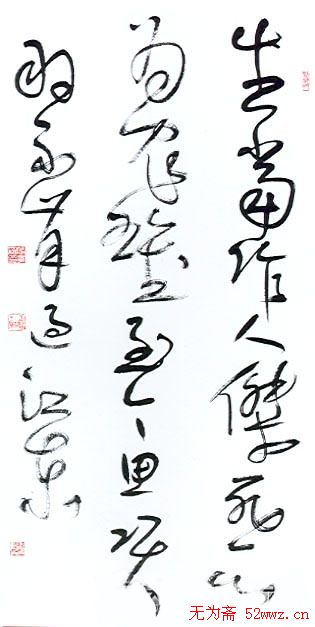 生當作人傑死亦
為鬼雄至今思項
羽不肯過江東
无为斋 52wwz.cn